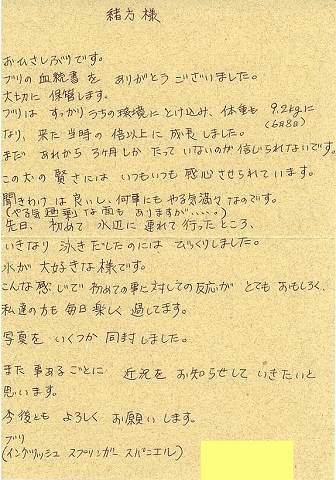 緒方様
おひさしぶりです。
ブリの血統書を ありがとうございました。
大切に保管します。
ブリは すっかりうちの環境にとけ込み、体重も 9.2kgに
(6月8日)
なり、来た当時の 倍以上に 成長しました。
まだ あれから 3ヶ月しか たって いないのが 信じられないです。
この犬の 賢さには いつもいつも 感心させられています。
聞きわけは良いし、何事にも やる気満々なのです。
(やる気過剰な面も ありますが・・・・。)
先日、初めて 水辺に 連れて行ったところ、
いきなり 泳ぎだしたのには びっくりしました。
水が 大好きな様です。
こんな感じで 初めての事に対しての反応が とても おもしろく、
私達の方も 毎日 楽しく 過してます。
写真を いくつか 同封しました。
また 事あるごとに 近況を お知らせして いきたいと
思います。
今後とも よろしく お願いします。
ブリ
(イングリッシュ スプリンガー スパニエル)